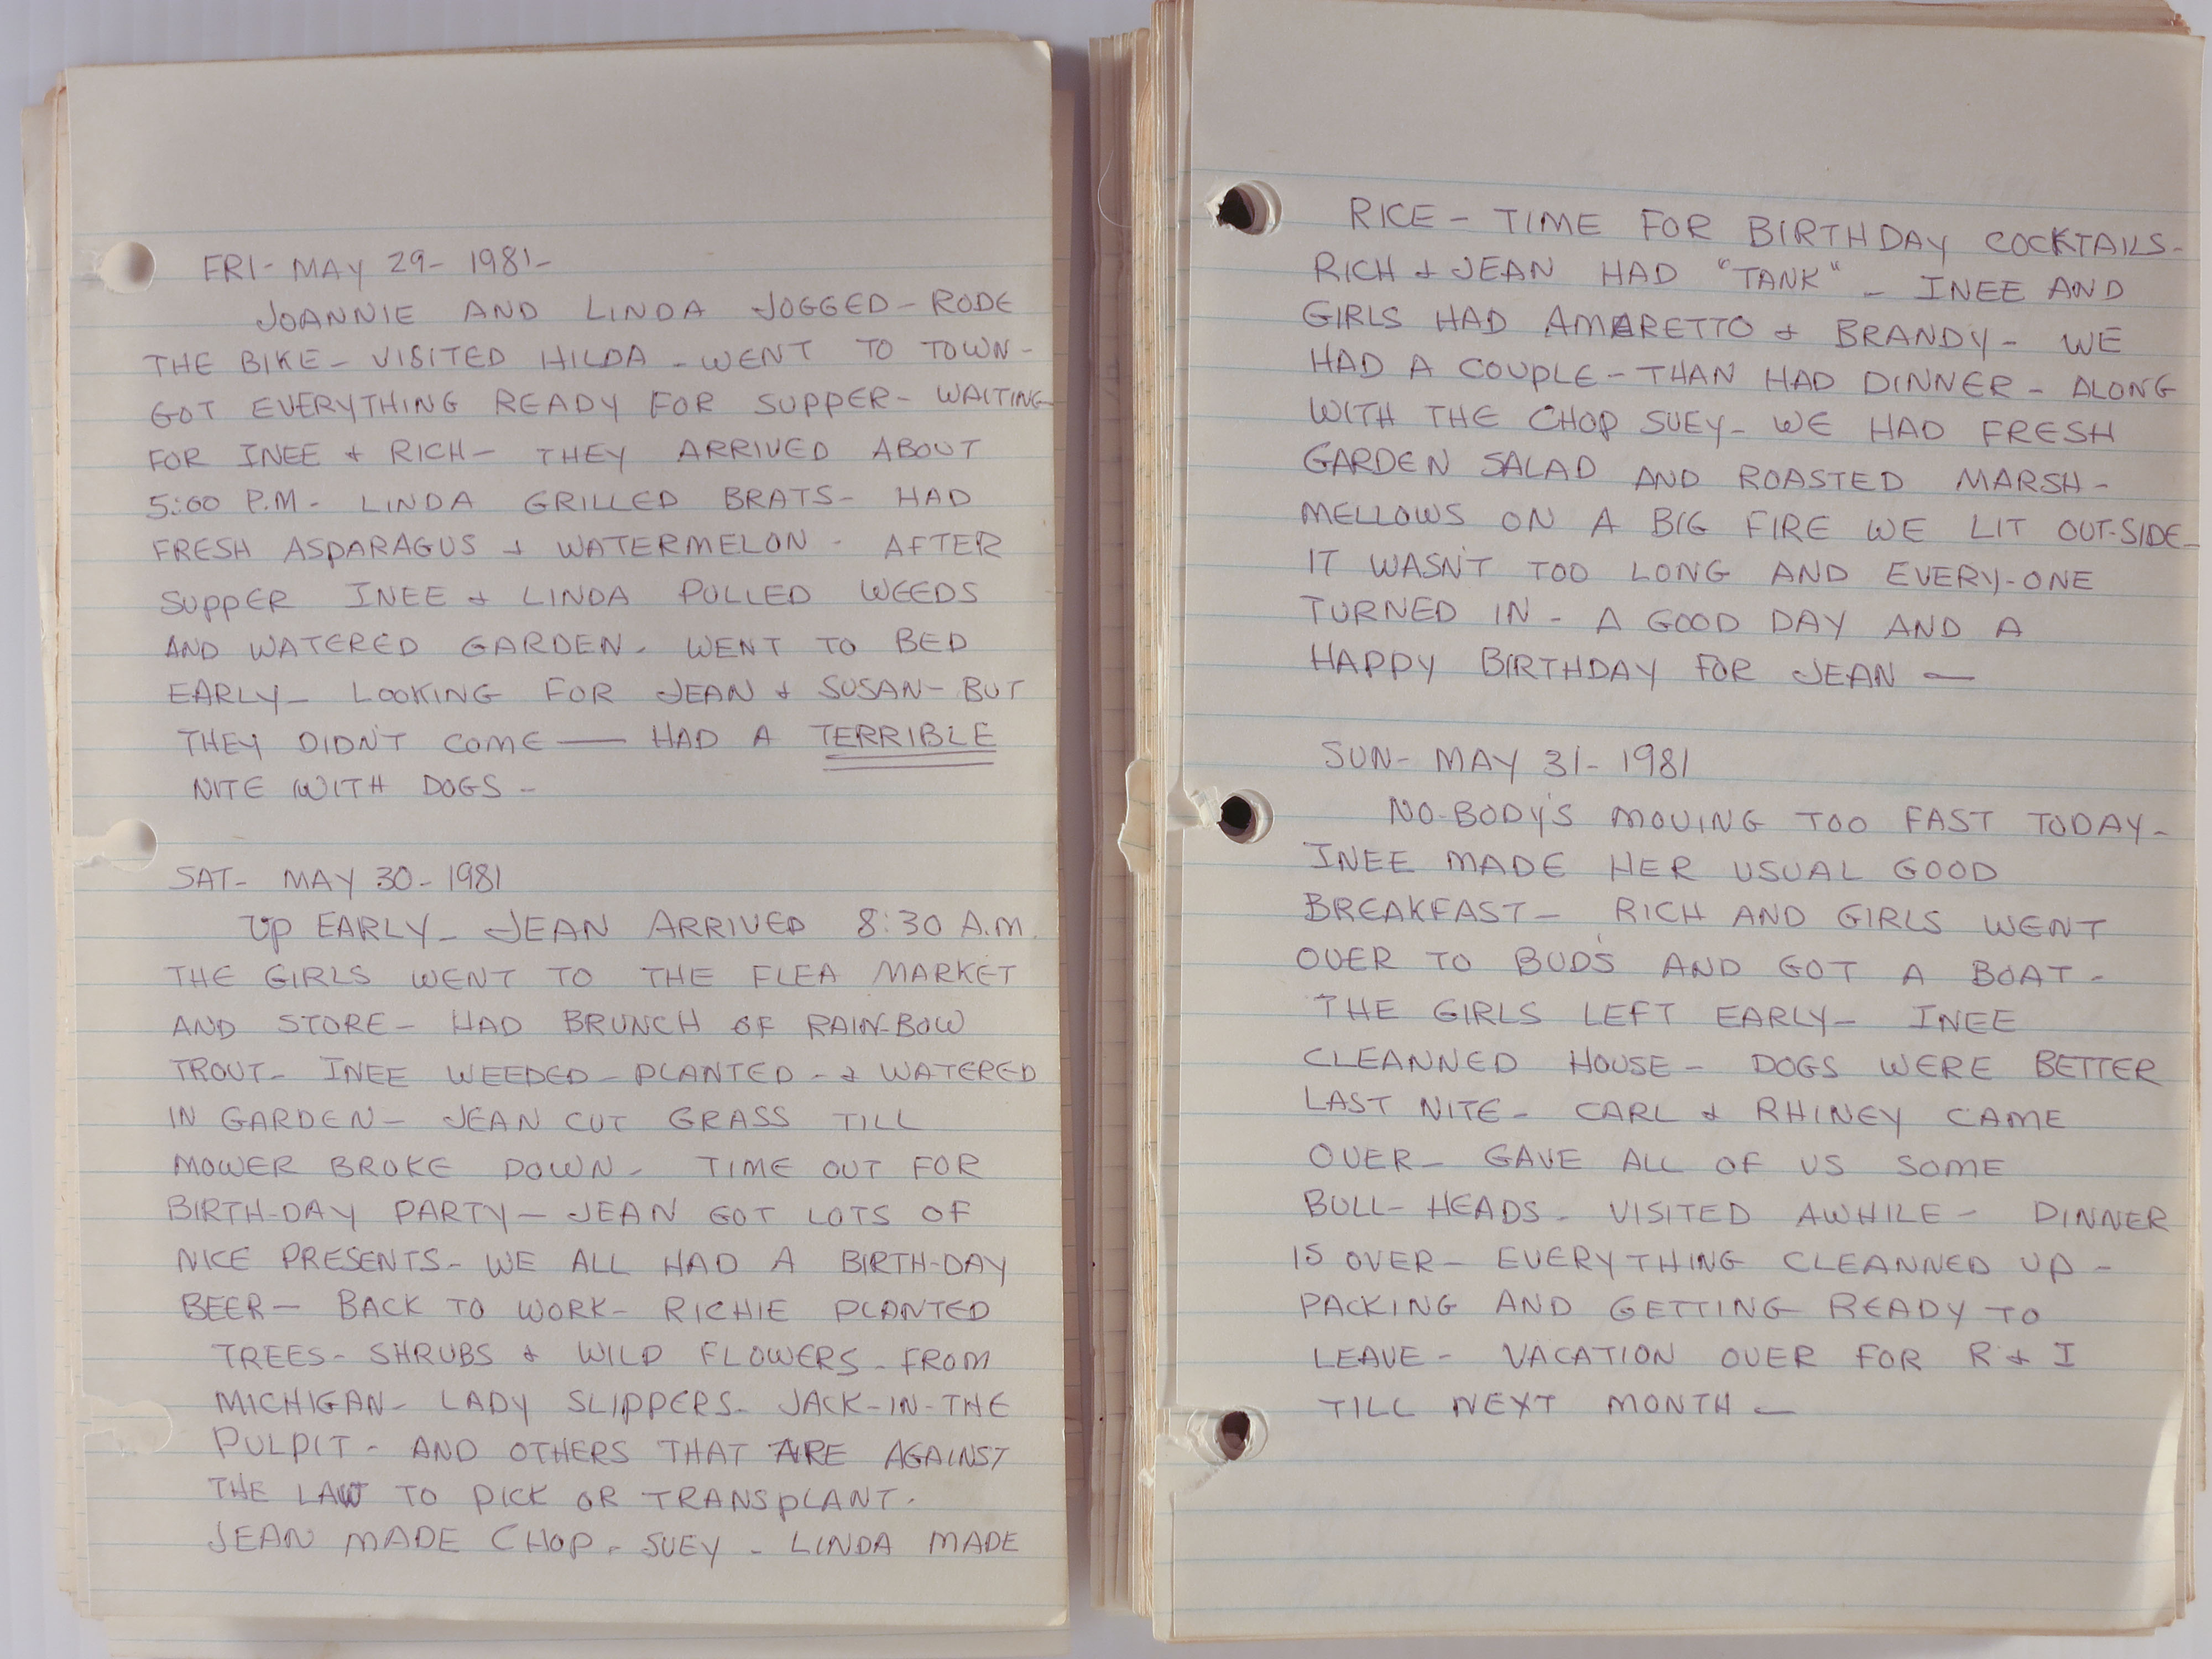 FRI- MAY 29- 1981-
JOANNIE AND LINDA JOGGED - RODE
THE BIKE - VISITED HILDA - WENT TO TOWN -
GOT EVERYTHING READY FOR SUPPER - WAITING
FOR INEE & RICH - THEY ARRIVED ABOUT
5:00 P.M - LINDA GRILLED BRATS - HAD
FRESH ASPARAGUS & WATERMELON - AFTER
SUPPER INEE & LINDA PULLED WEEDS
AND WATERED GARDEN - WENT TO BED
EARLY - LOOKING FOR JEAN & SUSAN - BUT
THEY DIDN'T COME — HAD A TERRIBLE
NITE WITH DOGS -
SAT- MAY 30- 1981
UP EARLY - JEAN ARRIVED 8:30 A.M.
THE GIRLS WENT TO THE FLEA MARKET
AND STORE - HAD BRUNCH OF RAIN-BOW
TROUT - INEE WEEDED - PLANTED - & WATERED
IN GARDEN - JEAN CUT GRASS TILL
MOWER BROKE DOWN - TIME OUT FOR
BIRTH-DAY PARTY - JEAN GOT LOTS OF
NICE PRESENTS - WE ALL HAD A BIRTH-DAY
BEER - BACK TO WORK - RICHIE PLANTED
TREES - SHRUBS & WILD FLOWERS - FROM
MICHIGAN - LADY SLIPPERS - JACK-IN-THE
PULPIT - AND OTHERS THAT ARE AGAINST
THE LAW TO PICK OR TRANSPLANT.
JEAN MADE CHOP - SUEY - LINDA MADE
RICE - TIME FOR BIRTHDAY COCKTAILS -
RICH & JEAN HAD "TANK" - INEE AND
GIRLS HAD AMARETTO & BRANDY - WE
HAD A COUPLE - THAN HAD DINNER - ALONG
WITH THE CHOP SUEY - WE HAD FRESH
GARDEN SALAD AND ROASTED MARSH-
MELLOWS ON A BIG FIRE WE LIT OUT-SIDE -
IT WASN'T TOO LONG AND EVERY-ONE
TURNED IN - A GOOD DAY AND A
HAPPY BIRTHDAY FOR JEAN —
SUN- MAY 31- 1981
NO-BODY'S MOVING TOO FAST TODAY -
INEE MADE HER USUAL GOOD
BREAKFAST - RICH AND GIRLS WENT
OVER TO BUD'S AND GOT A BOAT -
THE GIRLS LEFT EARLY - INEE
CLEANNED HOUSE - DOGS WERE BETTER
LAST NITE - CARL & RHINEY CAME
OVER - GAVE ALL OF US SOME
BULL-HEADS - VISITED AWHILE - DINNER
IS OVER - EVERYTHING CLEANNED UP -
PACKING AND GETTING READY TO
LEAVE - VACATION OVER FOR R & I
TILL NEXT MONTH —